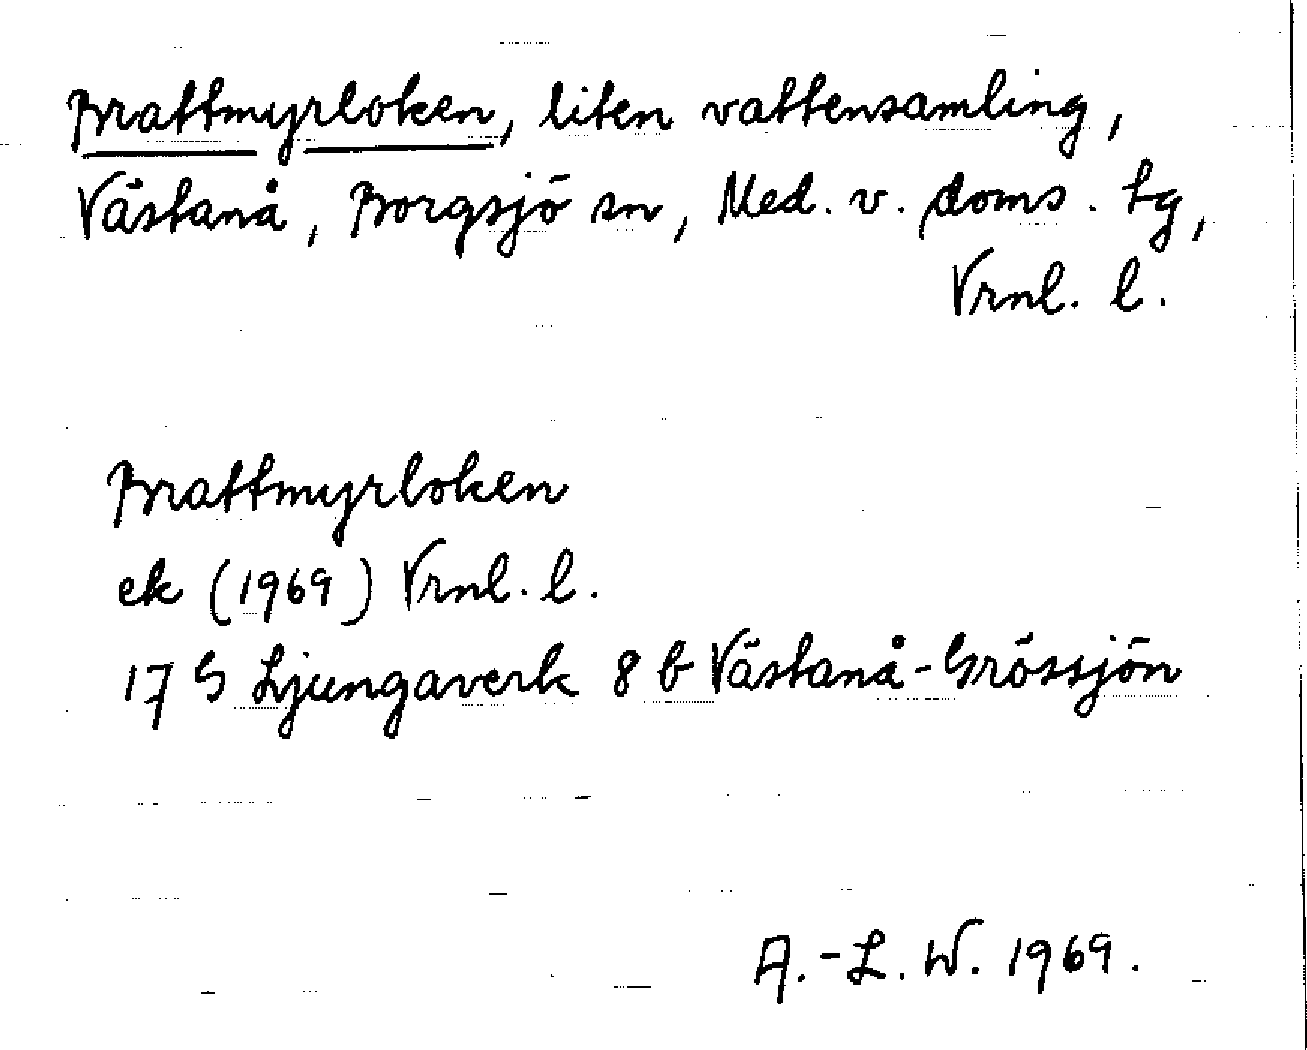 Brattmyrloken, liten vattensamling,
Västanå, Borgsjö sn, Med. v. doms. tg,
Vrnl. l.
Brattmyrloken
ek (1969) Vrnl. l.
17 G Ljungaverk 8 b Västanå-Grössjön
A.-L. W. 1969.